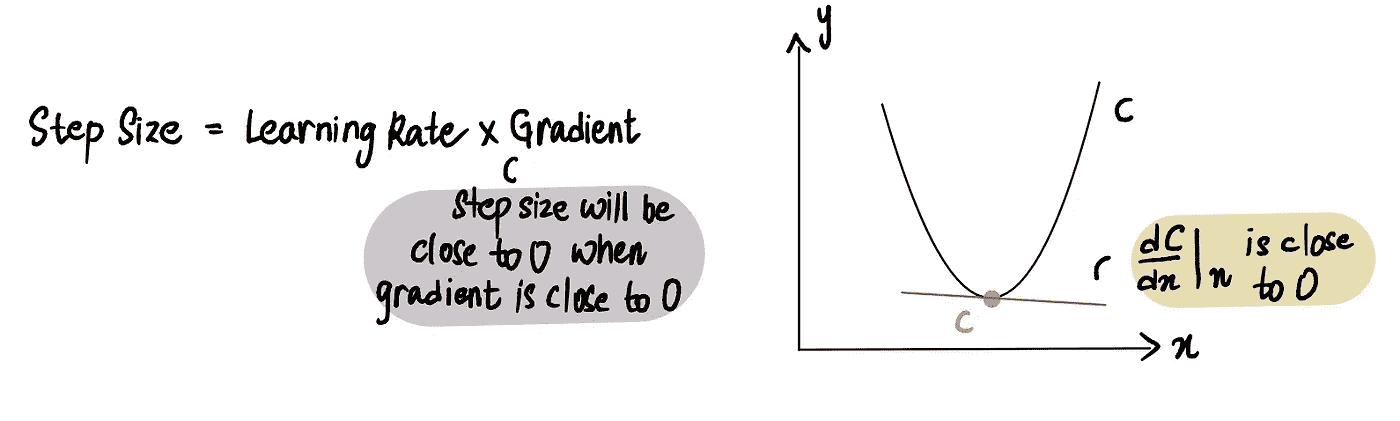 Step Size = Learning Rate x Gradient
Step size will be
close to 0 when
gradient is close to 0
y
C
dC/dx|x is close
to 0
C
x